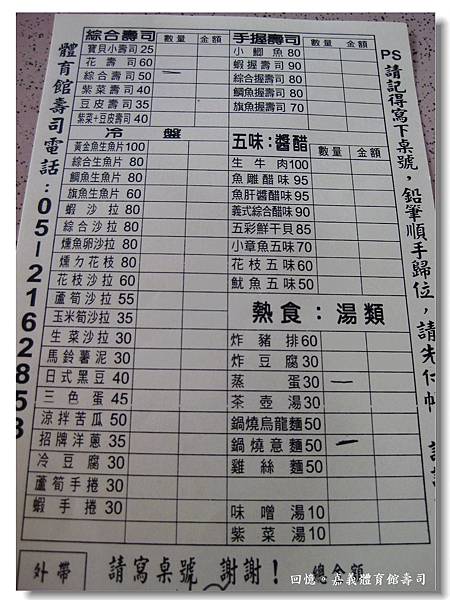 體育館壽司電話:05-2162853
綜合壽司 數量 金額
寶貝小壽司 25
花壽司 60
綜合壽司 50 一
紫菜壽司 40
豆皮壽司 35
紫菜+豆皮壽司 40
冷盤
黃金魚生魚片 100
綜合生魚片 80
鯛魚生魚片 80
旗魚生魚片 60
蝦沙拉 80
綜合沙拉 80
燻魚卵沙拉 80
燻ㄉ花枝 80
花枝沙拉 60
蘆筍沙拉 55
玉米筍沙拉 35
生菜沙拉 30
馬鈴薯泥 30
日式黑豆 40
三色蛋 45
涼拌苦瓜 50
招牌洋蔥 35
冷豆腐 30
蘆筍手捲 30
蝦手捲 30
手握壽司 數量 金額
小鯽魚 80
蝦握壽司 90
綜合握壽司 80
鯛魚握壽司 80
旗魚握壽司 70
五味:醬醋 數量 金額
生牛肉 100
魚雕醋味 95
魚肝醬醋味 95
義式綜合醋味 90
五彩鮮干貝 85
小章魚五味 70
花枝五味 60
魷魚五味 50
熱食:湯類
炸豬排 60
炸豆腐 30
蒸蛋 30 一
茶壺湯 30
鍋燒烏龍麵 50
鍋燒意麵 50 一
雞絲麵 50
味噌湯 10
紫菜湯 10
PS 請記得寫下桌號,鉛筆順手歸位,請先付帳
外帶 請寫桌號 謝謝! 總金額
回憶。嘉義體育館壽司